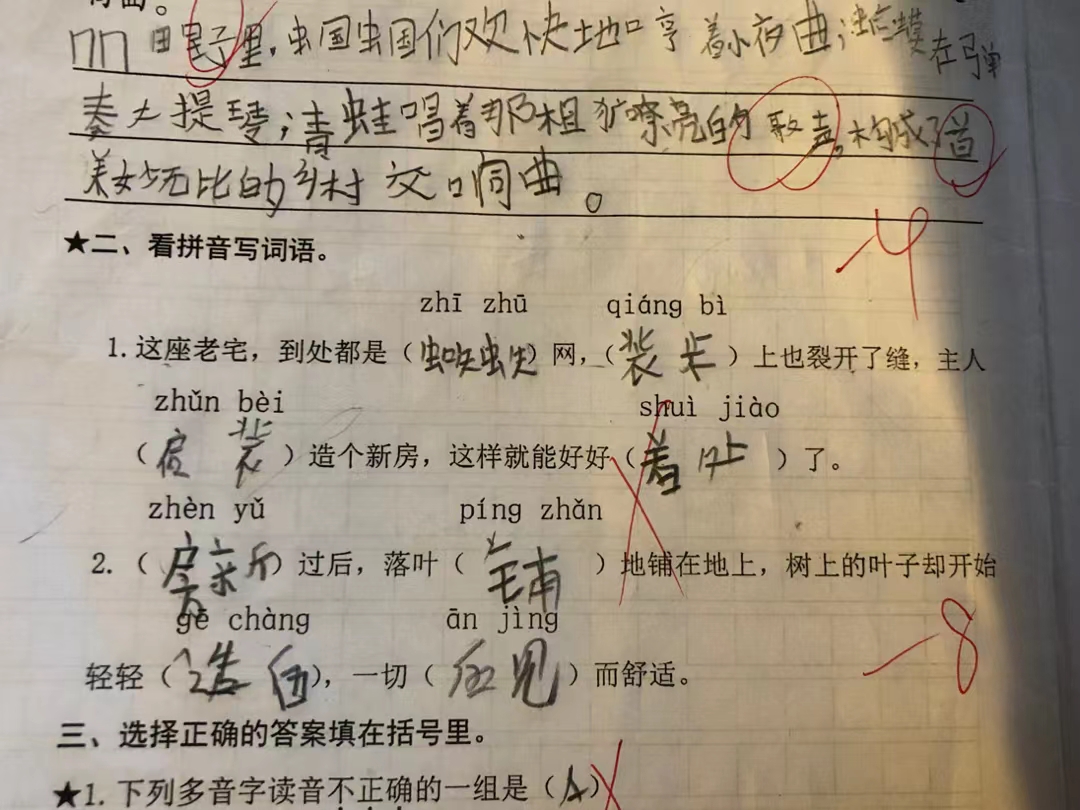 田野里,蝈蝈们欢快地哼着小夜曲;在弹
奏大提琴;青蛙唱着那粗犷嘹亮的歌声,构成了首
美妙无比的乡村交响曲。
-4
★二、看拼音写词语。
zhī zhū qiáng bì
1.这座老宅,到处都是()网,(装)上也裂开了缝,主人
zhǔn bèi shuì jiào
()造个新房,这样就能好好(着)了。
zhèn yǔ píng zhǎn
2.()过后,落叶(铺)地铺在地上,树上的叶子却开始
gē chàng ān jìng
轻轻(造),一切()而舒适。
-8
三、选择正确的答案填在括号里。
★1.下列多音字读音不正确的一组是(A)